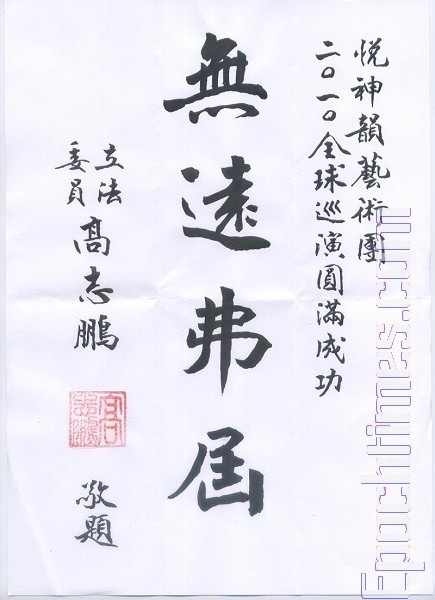 悦神韻藝術團
二〇一〇全球巡演圓滿成功
無遠弗屆
立法
委員
髙志鵬
敬題
Epochtimes.com